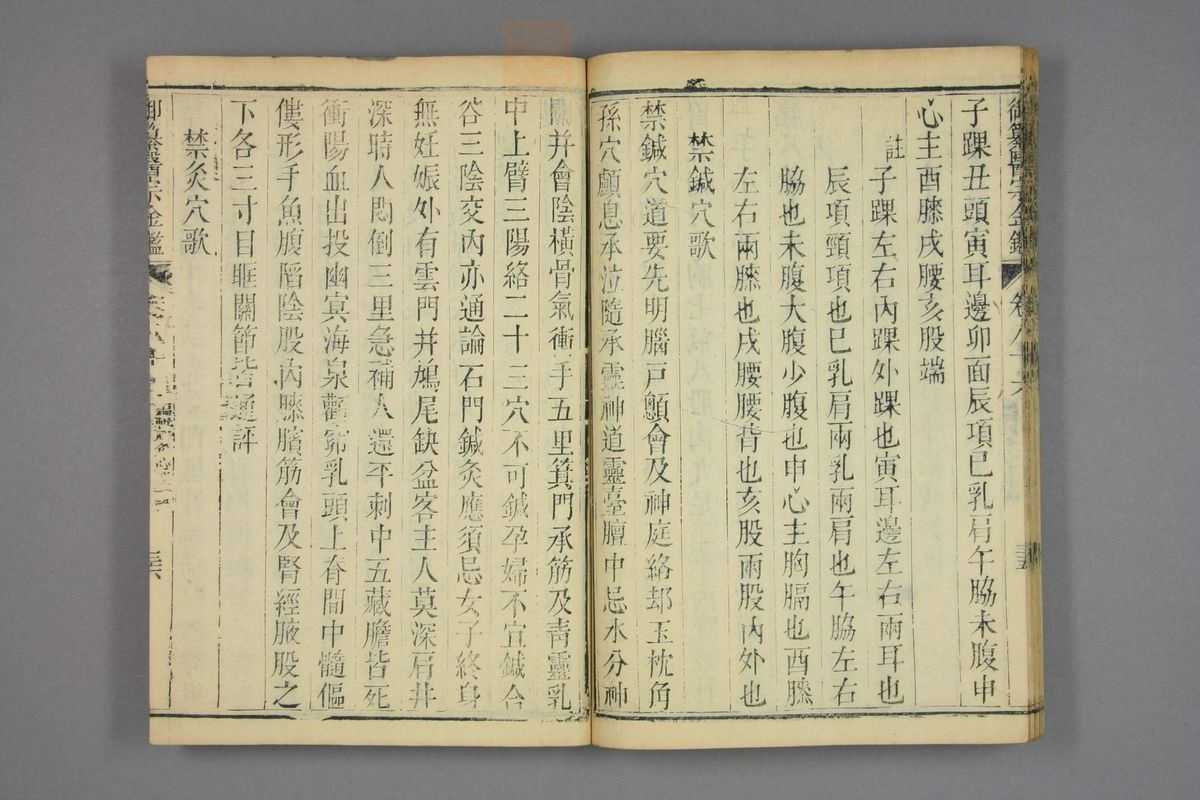 御纂醫宗金鑑 卷八十六 三五
子踝丑頭寅耳邊卯面辰項巳乳肩午脇未腹申
心主酉膝戌腰亥股端
註
子踝左右內踝外踝也寅耳邊左右兩耳也
辰項頸項也巳乳肩兩乳兩肩也午脇左右
脇也未腹大腹少腹也申心主胸膈也酉膝
左右兩膝也戌腰腰背也亥股兩股內外也
禁鍼穴歌
禁鍼穴道要先明腦戶顖會及神庭絡却玉枕角
孫穴顱息承泣隨承靈神道靈臺膻中忌水分神
闕并會陰橫骨氣衝手五里箕門承筋及靑靈乳
中上臂三陽絡二十三穴不可鍼孕婦不宜鍼合
谷三陰交內亦通論石門鍼灸應須忌女子終身
無妊娠外有雲門并鳩尾缺盆客主人莫深肩井
深時人悶倒三里急補人還平刺中五藏膽皆死
衝陽血出投幽冥海泉顴窌乳頭上脊間中髓傴
僂形手魚腹陷陰股內膝臏筋會及腎經腋股之
下各三寸目眶關節皆通評
禁灸穴歌
御纂醫宗金鑑 三六